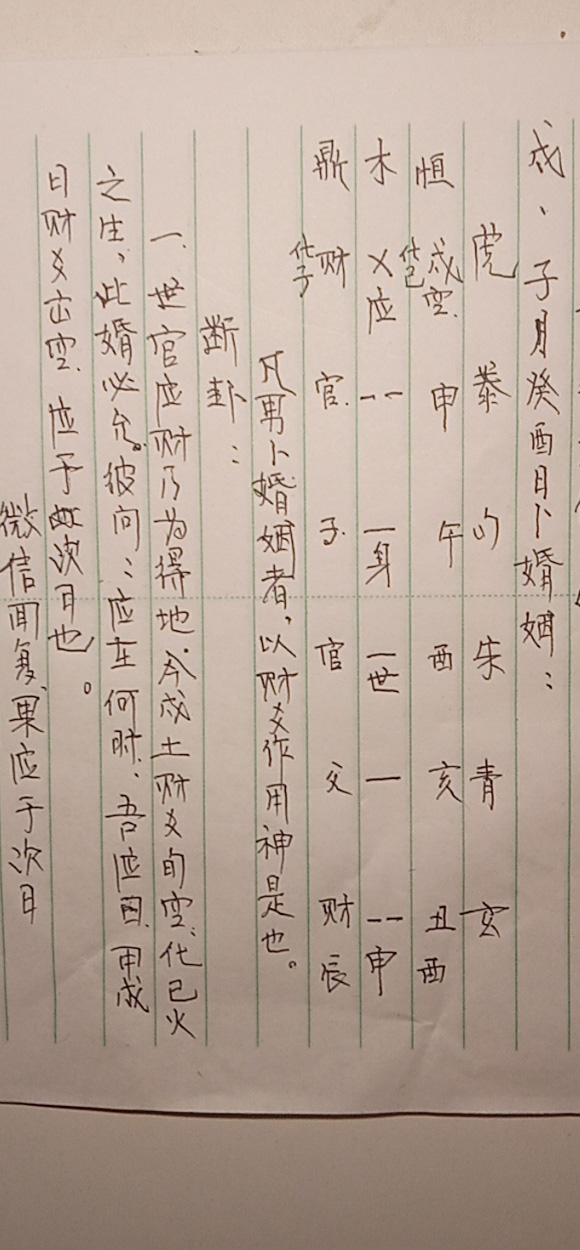 戌、子月癸酉日卜婚姻:
虎 蛰 勾 朱 青 玄
恒 戌空. 化巳 申 午 酉 亥 丑 酉
木 乂应 -- 一身 一世 一 --申
鼎 财 化子 官. 子. 官 父 财 辰
凡男卜婚姻者,以财爻作用神是也。
断卦:
一、世官应财乃为得地.今戌土财爻旬空.化巳火
之生,此婚必允。彼问:应在何时、吾应曰.甲戌
日财爻出空.应于次月也。
微信回复.果应于次月